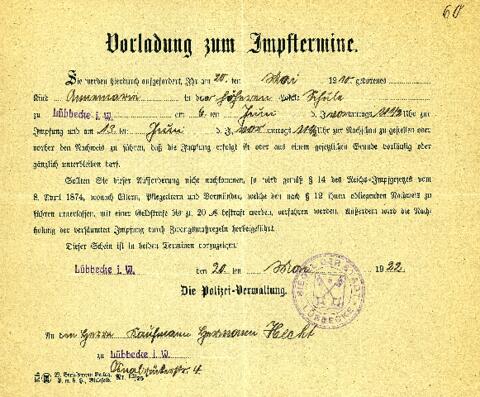 60
Vorladung zum Impftermine.
Sie werden hierdurch aufgefordert, Ihr am 20. ten Mai 1910. geborenes
Kind Annemarie in der höheren Schule
zu Lübbecke i. W. am 6. ten Juni d. J. vormittags Uhr zur
Impfung und am 13. ten Juni d. J. vormittags Uhr zur Nachschau zu gestellen oder
vorher den Nachweis zu führen, daß die Impfung erfolgt ist oder aus einem gesetzlichen Grunde vorläufig oder
gänzlich unterbleiben darf.
Sollten Sie dieser Aufforderung nicht nachkommen, so wird gemäß § 14 des Reichs-Impfgesetzes vom
8. April 1874, wonach Eltern, Pflegeeltern und Vormünder, welche den nach § 12 ihnen obliegenden Nachweis zu
führen unterlassen, mit einer Geldstrafe bis zu 20 M bestraft werden, verfahren werden. Außerdem wird die Nach-
holung der versäumten Impfung durch Zwangsmaßregeln herbeigeführt.
Dieser Schein ist in beiden Terminen vorzuzeigen.
Lübbecke i. W. den 20. ten Mai 1922.
Die Polizei-Verwaltung.
SIEGEL DER STADT LÜBBECKE
An den Herrn Kaufmann Hermann Hecht
zu Lübbecke i. W.
4.